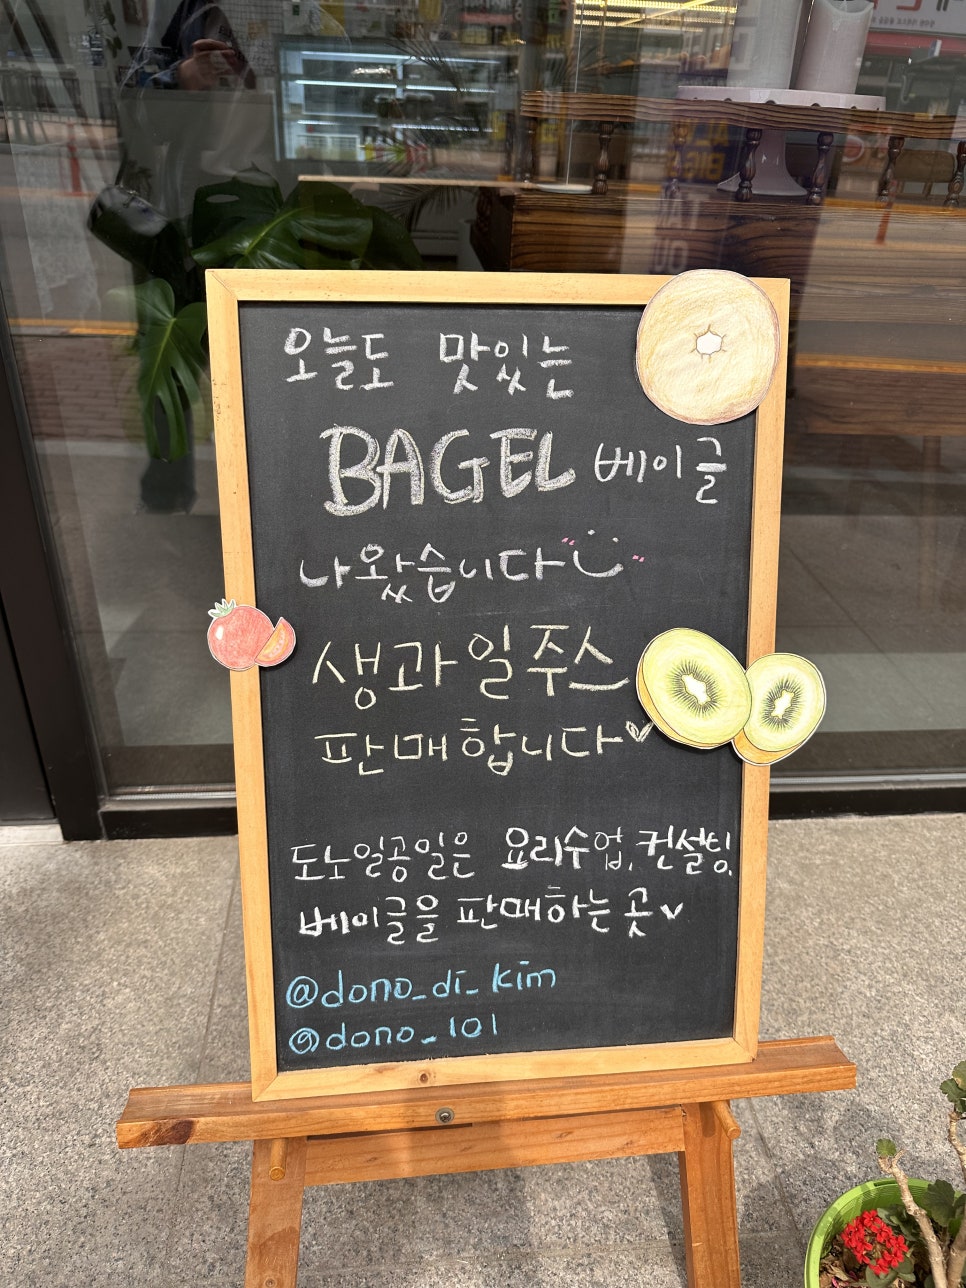 오늘도 맛있는
BAGEL 베이글
나왔습니다
생과일쥬스
판매합니다
도노일공일은 요리수업, 컨설팅,
베이글을 판매하는 곳
@dono_di_kim
@dono_101